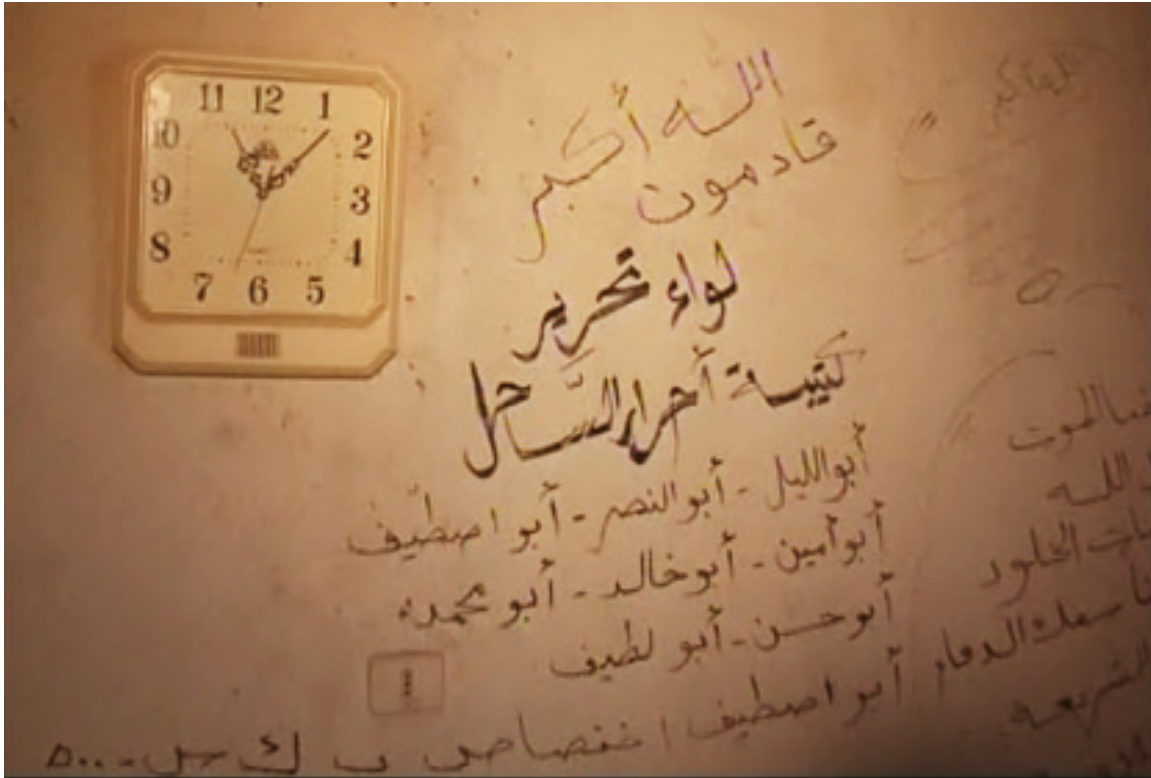 11 12 1
10 2
9 3
8 4
7 6 5
الله أكبر
قادمون
لواء تحرير
كتيبة أحرار السَّاحل
أبو الليل - أبو النصر - أبو اصطيف
أبو أمين - أبو خالد - أبو محمد
أبو حسن - أبو لطيف
أبو اصطيف اختصاص ب ك س
الله أكبر
الموت
الله
الخلود
الشريعه